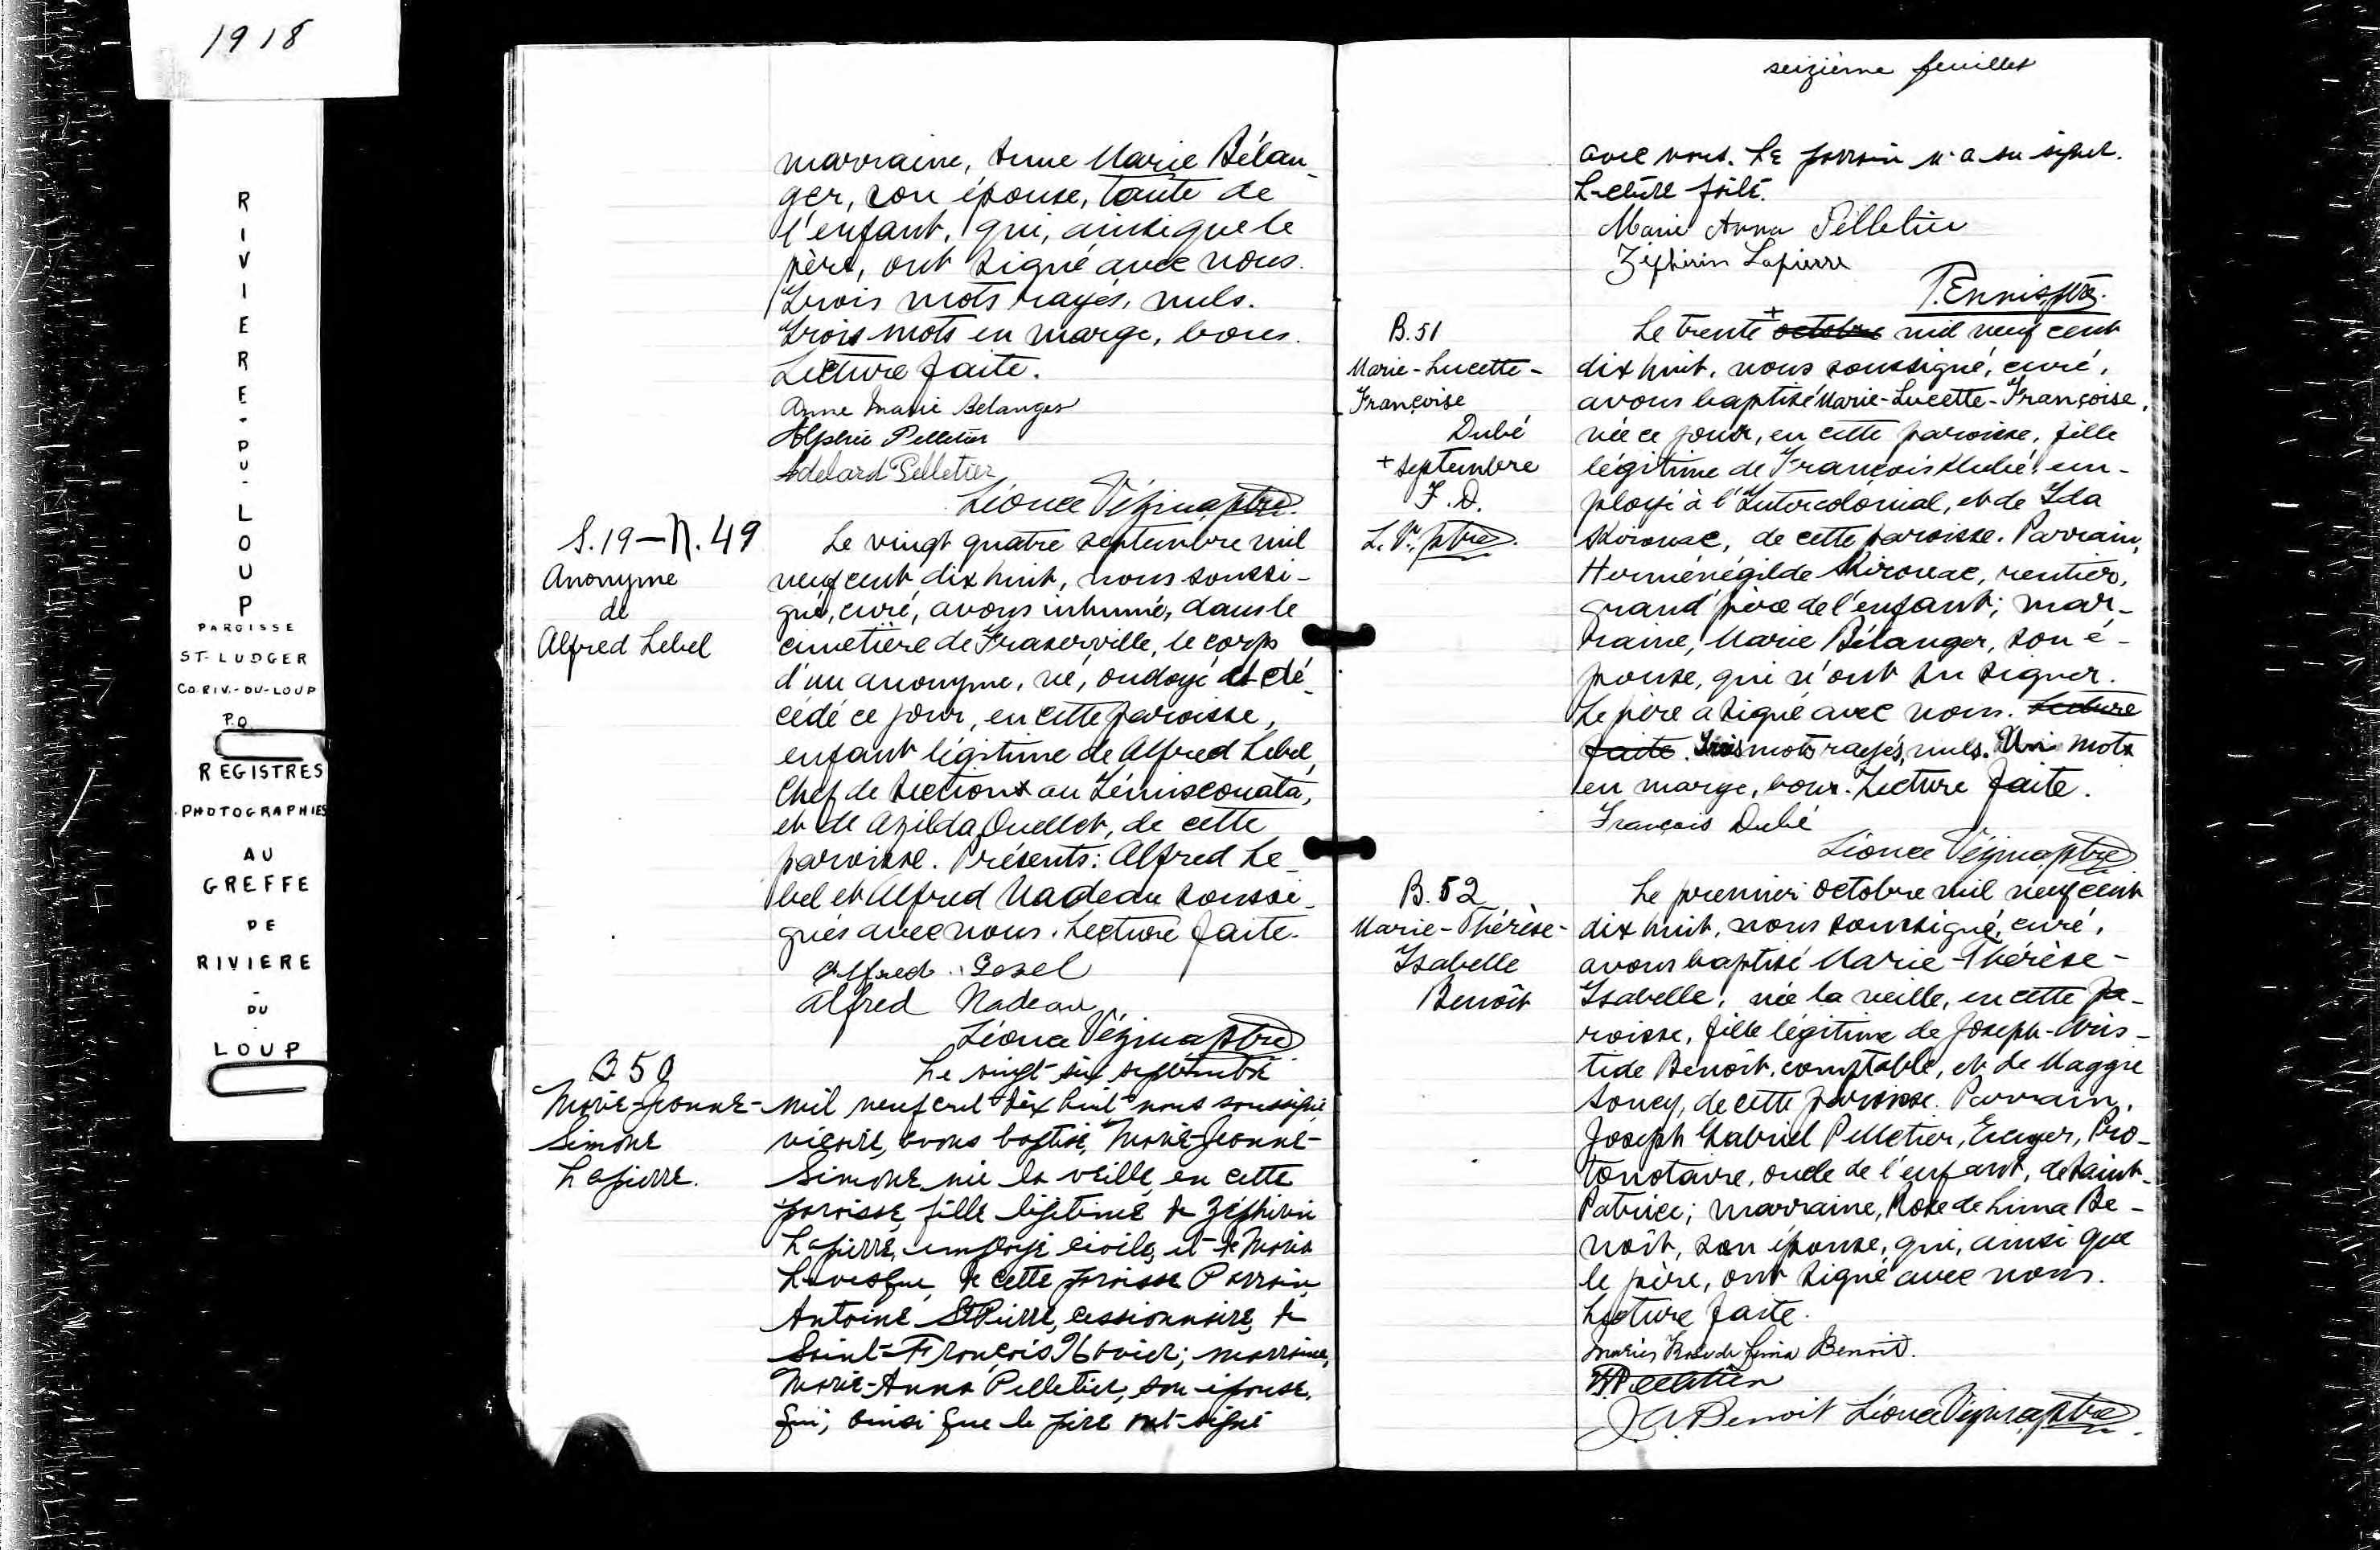 1918
RIVIERE-DU-LOUP
PAROISSE
ST-LUDGER
CO. RIV.-DU-LOUP
P.Q.
REGISTRES
PHOTOGRAPHIES
AU
GREFFE
DE
RIVIERE
-
DU
LOUP
marraine, Anne Marie Bélan-
ger, son épouse, tante de
l'enfant, qui, ainsi que le
père, ont signé avec nous.
Trois mots rayés, nuls.
Trois mots en marge, bons.
Lecture faite.
Anne Marie Belanger
Alphée Pelletier
Adelard Pelletier
Léonce Vézina, ptre.
S.19 — N.49
Anonyme
de
Alfred Lebel
Le vingt quatre septembre mil
neuf cent dix huit, nous soussi-
gné, curé, avons inhumé, dans le
cimetière de Fraserville, le corps
d'un anonyme, né, ondoyé et dé-
cédé ce jour, en cette paroisse,
enfant légitime de Alfred Lebel,
Chef de section au Témiscouata,
et de Azilda Ouellet, de cette
paroisse. Présents: Alfred Le-
bel et Alfred Nadeau soussi-
gnés avec nous. Lecture faite.
Alfred Lebel
Alfred Nadeau
Léonce Vézina ptre
B.50
Marie-Jeanne-
Simone
Lapierre.
Le vingt-six septembre
mil neuf cent dix huit nous soussigné
vicaire, avons baptisé, Marie-Jeanne-
Simone née la veille, en cette
paroisse, fille légitime de Zéphirin
Lapierre, employé civile, et de Maria
Lavesque, de cette paroisse Parrain,
Antoine St Pierre, cessionnaire, de
Saint-François Xavier; marraine,
Marie-Anna Pelletier, son épouse,
qui, ainsi que le père ont signé
seizième feuillet
avec nous. Le parrain n'a su signer.
Lecture faite.
Marie Anna Pelletier
Zéphirin Lapierre
P. Ennis, ptre.
B.51
Marie-Lucette-
Françoise
Dubé
+ septembre
F. D.
L. V. ptre.
Le trente + octobre mil neuf cent
dix huit, nous soussigné, curé,
avons baptisé Marie-Lucette-Françoise,
née ce jour, en cette paroisse, fille
légitime de François Dubé, em-
ployé à l'Intercolonial, et de Ida
Kirouac, de cette paroisse. Parrain,
Herménégilde Kirouac, rentier,
grand'père de l'enfant; mar-
raine, Marie Bélanger, son é-
pouse, qui n'ont su signer.
Le père a signé avec nous. Lecture
faite. Trois mots rayés, nuls. Un mots
en marge, bons. Lecture faite.
François Dubé
Léonce Vézina ptre
B.52
Marie-Thérèse-
Isabelle
Benoît
Le premier octobre mil neuf cent
dix huit, nous soussigné, curé,
avons baptisé Marie-Thérèse-
Isabelle, née la veille, en cette pa-
roisse, fille légitime de Joseph-Aris-
tide Benoît, comptable, et de Maggie
Soucy, de cette paroisse. Parrain,
Joseph Gabriel Pelletier, Ecuyer, Pro-
tonotaire, oncle de l'enfant, de Saint-
Patrice; marraine, Rose de Lima Be-
noît, son épouse, qui, ainsi que
le père, ont signé avec nous.
Lecture faite.
Maries Rose de Lima Benoit.
Pelletier
J. A. Benoit Léonce Vézina, ptre